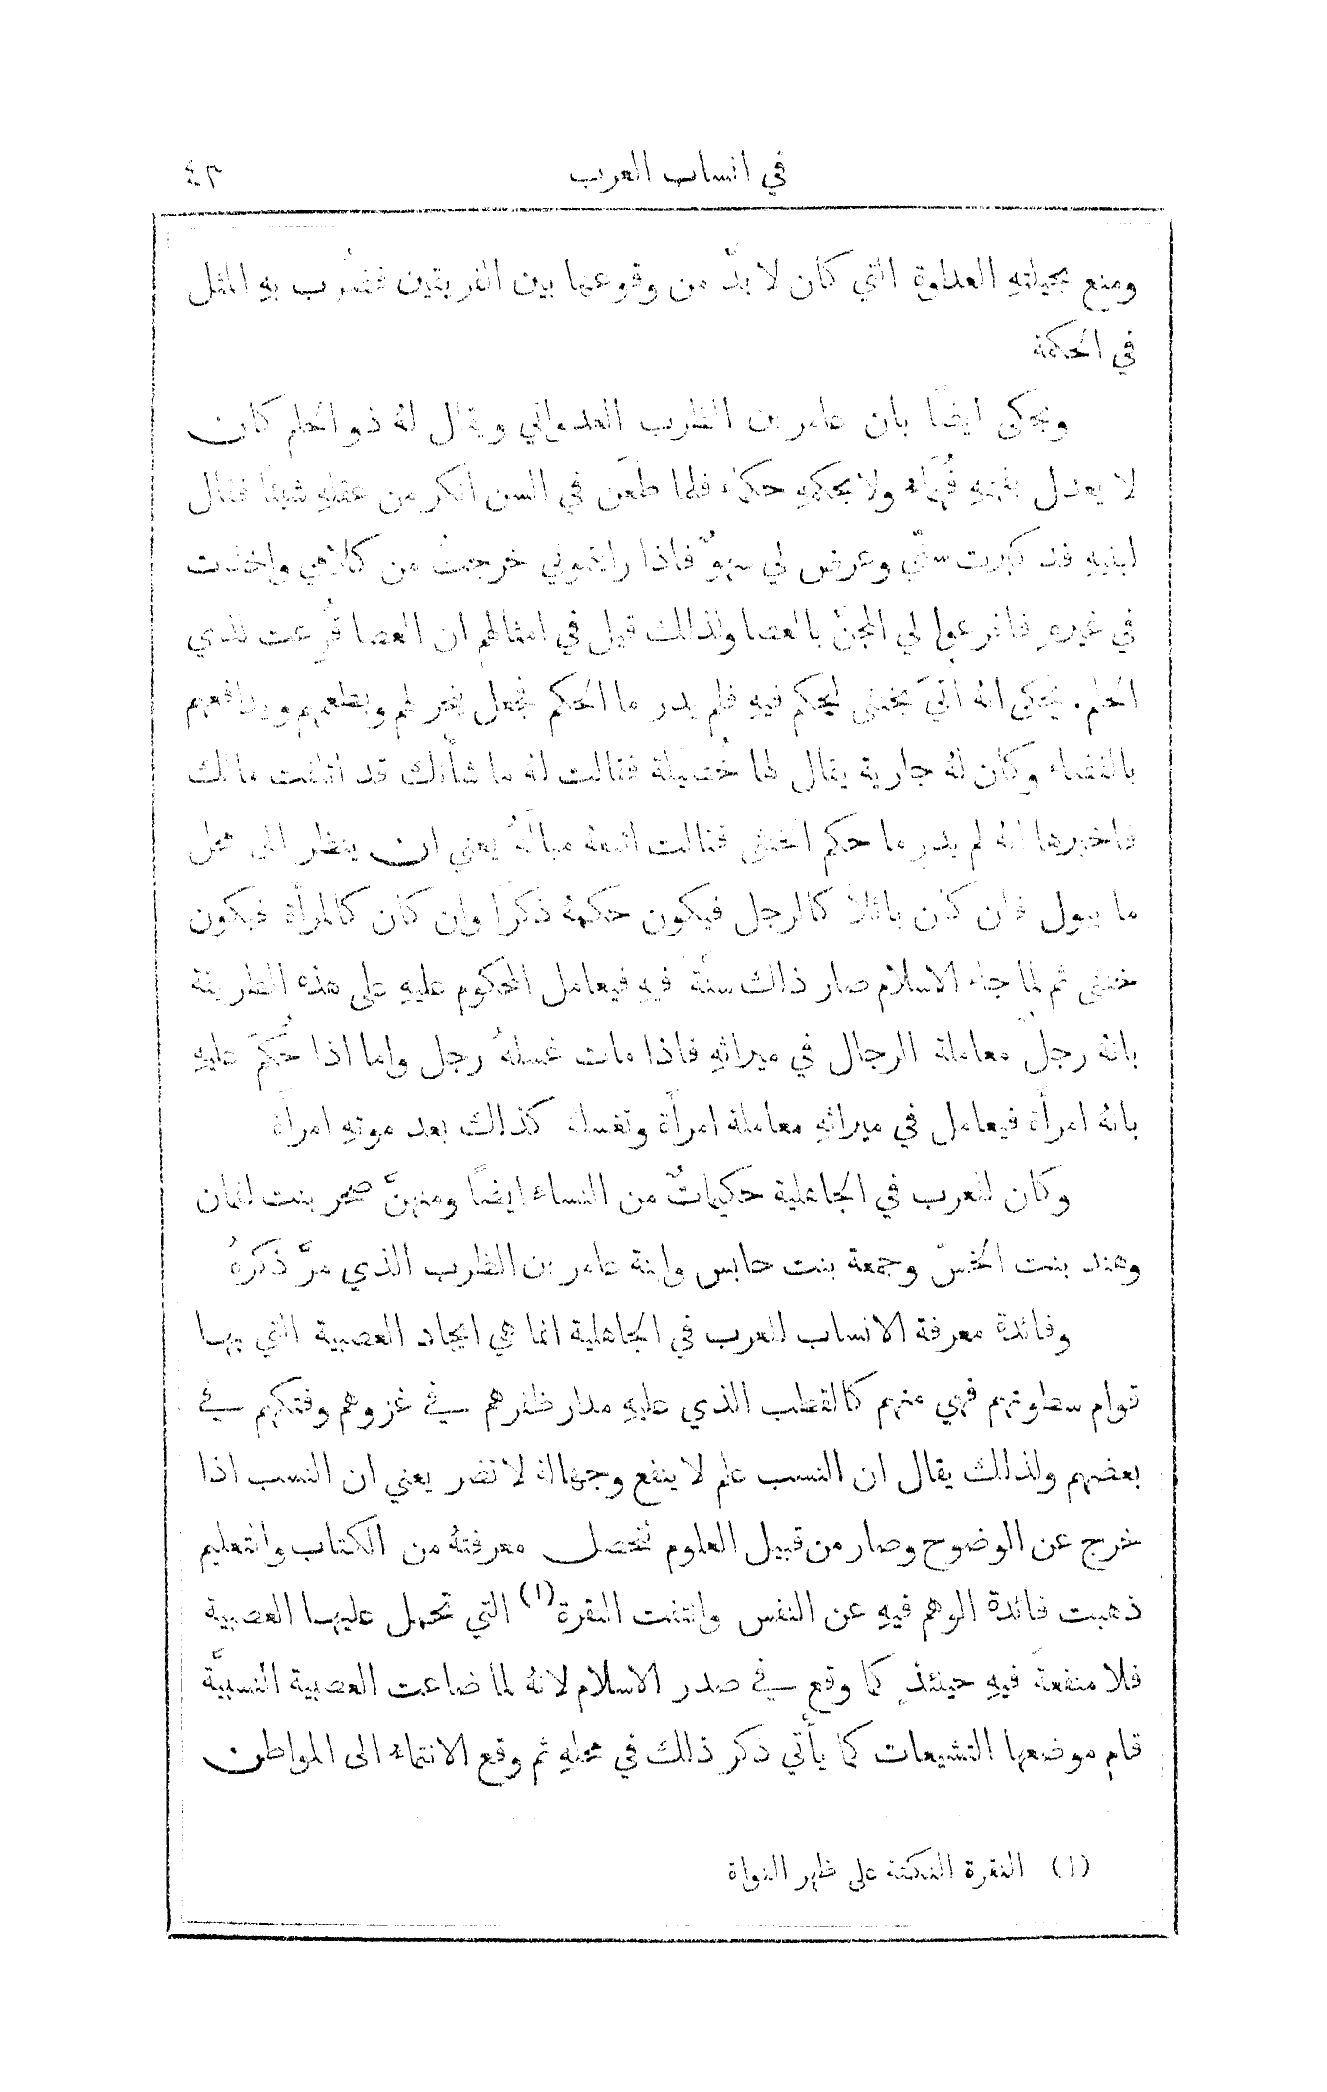 في انساب العرب
٤٣
ومنع بحيلتهِ العداوة التي كان لا بدَّ من وقوعها بين الفريقين فضُرب بهِ المثل
في الحكمة
ويحكى ايضًا بان عامر بن الظرب العدواني ويقال لهُ ذو الحلم كان
لا يعدل بفهمهِ فُهَماء ولا بحكمهِ حكماء فلما طعَن في السن انكر من عقلهِ شيئًا فقال
لبنيهِ قد كبرت سنّي وعرض لي سهوٌ فاذا رايتموني خرجتُ من كلامي واخذت
في غيرهِ فاقرعوا لي المجنَّ بالعصا ولذلك قيل في امثالهم ان العصا قُرِعت لذي
الحلم. يحكى انهُ اتيَ بخنثى ليحكم فيهِ فلم يدر ما الحكم فجعل ينحر لهم ويطعمهم ويدافعهم
بالقضاء وكان لهُ جارية يقال لها خُصَيلة فقالت لهُ ما شأنك قد اتلفت مالك
فاخبرها انهُ لم يدرِ ما حكم الخنثى فقالت اتبعهُ مبالَهُ يعني ان ينظر الى محل
ما يبول فان كان بائلاً كالرجل فيكون حكمهُ ذكرًا وان كان كالمرأة فيكون
خنثى ثم لما جاء الاسلام صار ذلك سنةً فيهِ فيعامل المحكوم عليهِ على هذه الطريقة
بانهُ رجلٌ معاملة الرجال في ميراثهِ فاذا مات غسلهُ رجل واما اذا حُكِمَ عليهِ
بانهُ امرأة فيعامل في ميراثهِ معاملة امرأة وتغسلهُ كذلك بعد موتهِ امرأة
وكان للعرب في الجاهلية حكيماتٌ من النساء ايضًا ومنهنَّ صحر بنت لقمان
وهند بنت الخسّ وجمعة بنت حابس وابنة عامر بن الظرب الذي مرَّ ذكرهُ
وفائدة معرفة الانساب للعرب في الجاهلية انما هي ايجاد العصبية التي بها
قوام سطوتهم فهي منهم كالقطب الذي عليهِ مدار ظفرهم في غزوهم وفتكهم في
بعضهم ولذلك يقال ان النسب علم لا ينفع وجهالة لا تضر يعني ان النسب اذا
خرج عن الوضوح وصار من قبيل العلوم تحصل معرفتهُ من الكتاب والتعليم
ذهبت فائدة الوهم فيهِ عن النفس وانتفت النقرة (١) التي تحمل عليها العصبية
فلا منفعةَ فيهِ حينئذٍ كما وقع في صدر الاسلام لانهُ لما ضاعت العصبية النسبيَّة
قام موضعها التشيعات كما يأتي ذكر ذلك في محلهِ ثم وقع الانتماء الى المواطن
(١) النقرة النكتة على ظهر النواة